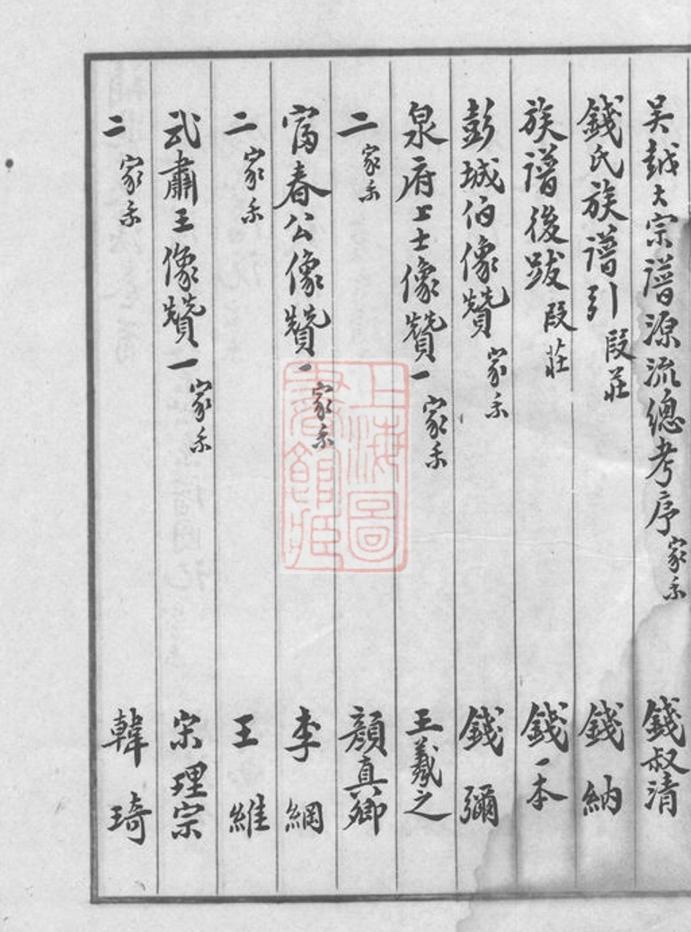 吳越大宗譜源流總考序 家乘 錢叔清
錢氏族譜引 段莊 錢納
族譜後跋 段莊 錢一本
彭城伯像贊 家乘 錢彌
泉府上士像贊一 家乘 王羲之
二 家乘 顏真卿
富春公像贊一 家乘 李綱
二 家乘 王維
武肅王像贊一 家乘 宋理宗
二 家乘 韓琦
上海圖書館藏